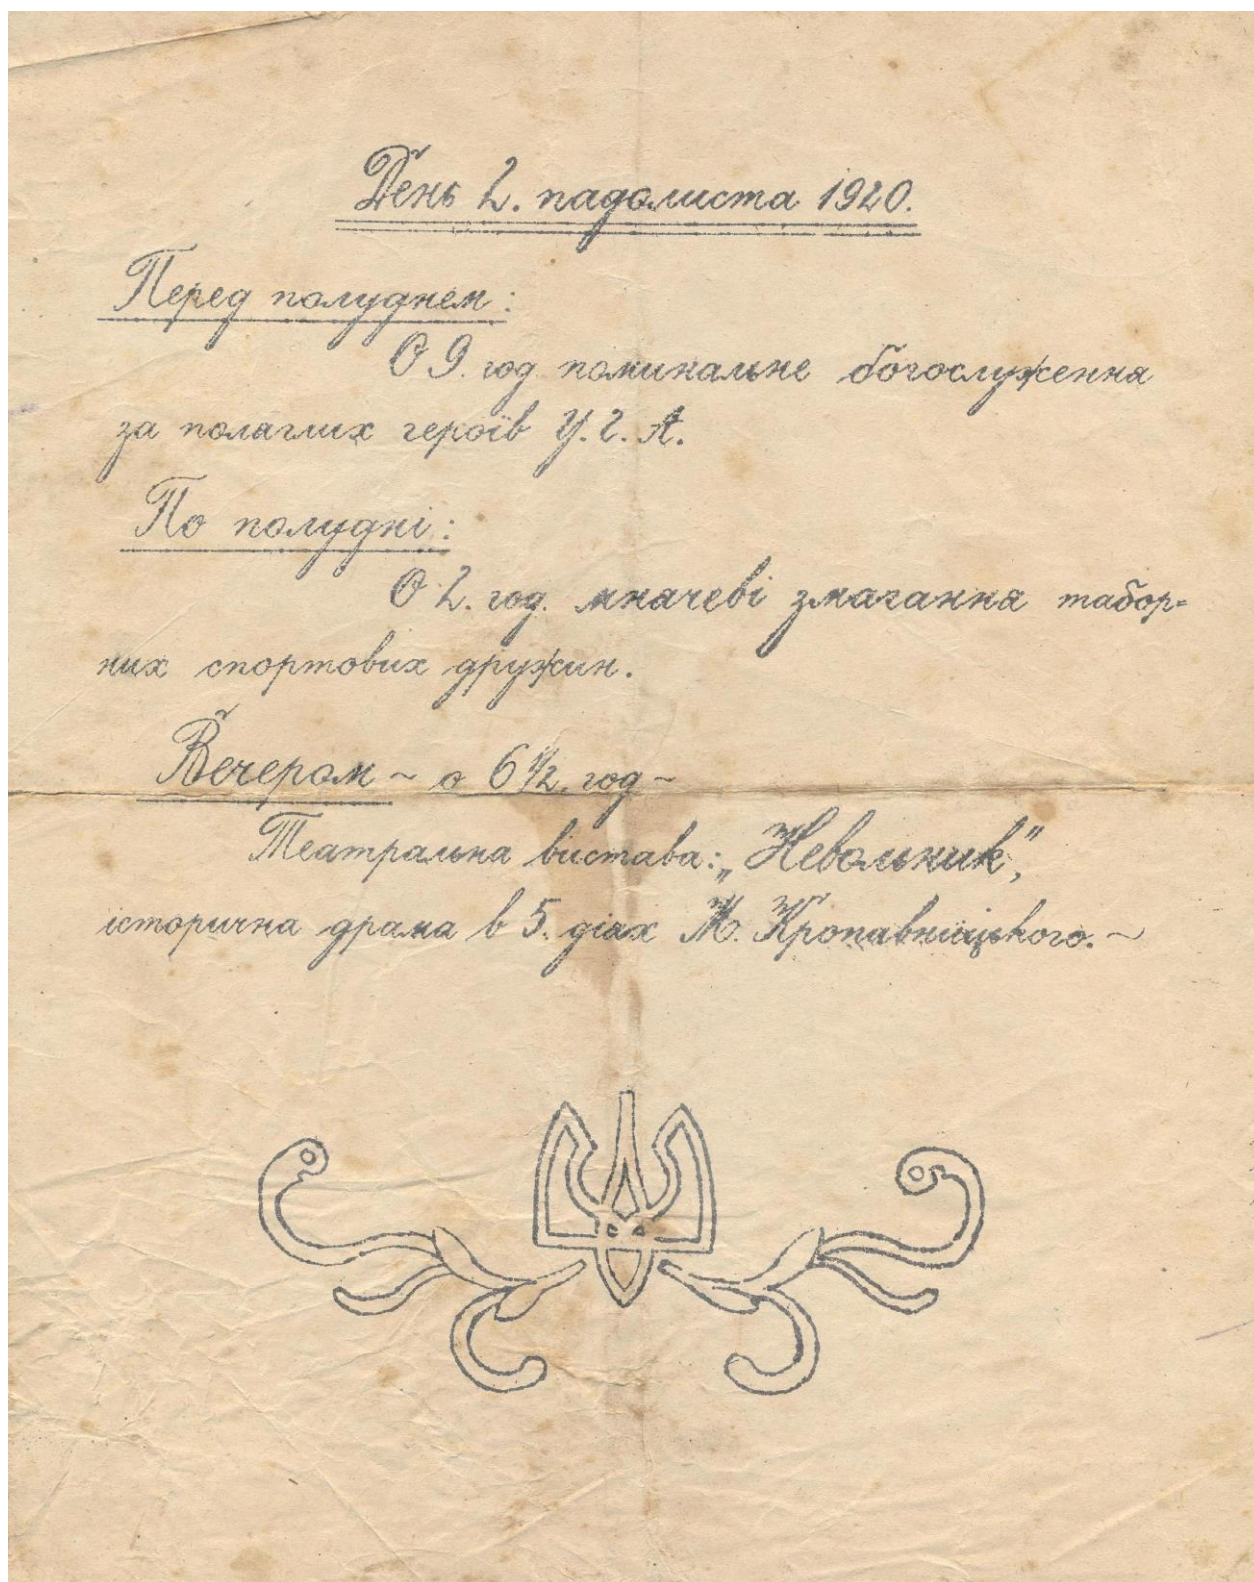 День 2. падолиста 1920.
Перед полуднем:
О 9. год поминальне богослуженна
за полаглих героїв У. Г. А.
По полудні:
О 2. год. мнячеві змагання табор-
них спортових дружин.
Вечером ~ о 6 1/2. год ~
Театральна вистава: „Невольник”,
історична драма в 5. діях М. Кропавніцького. ~